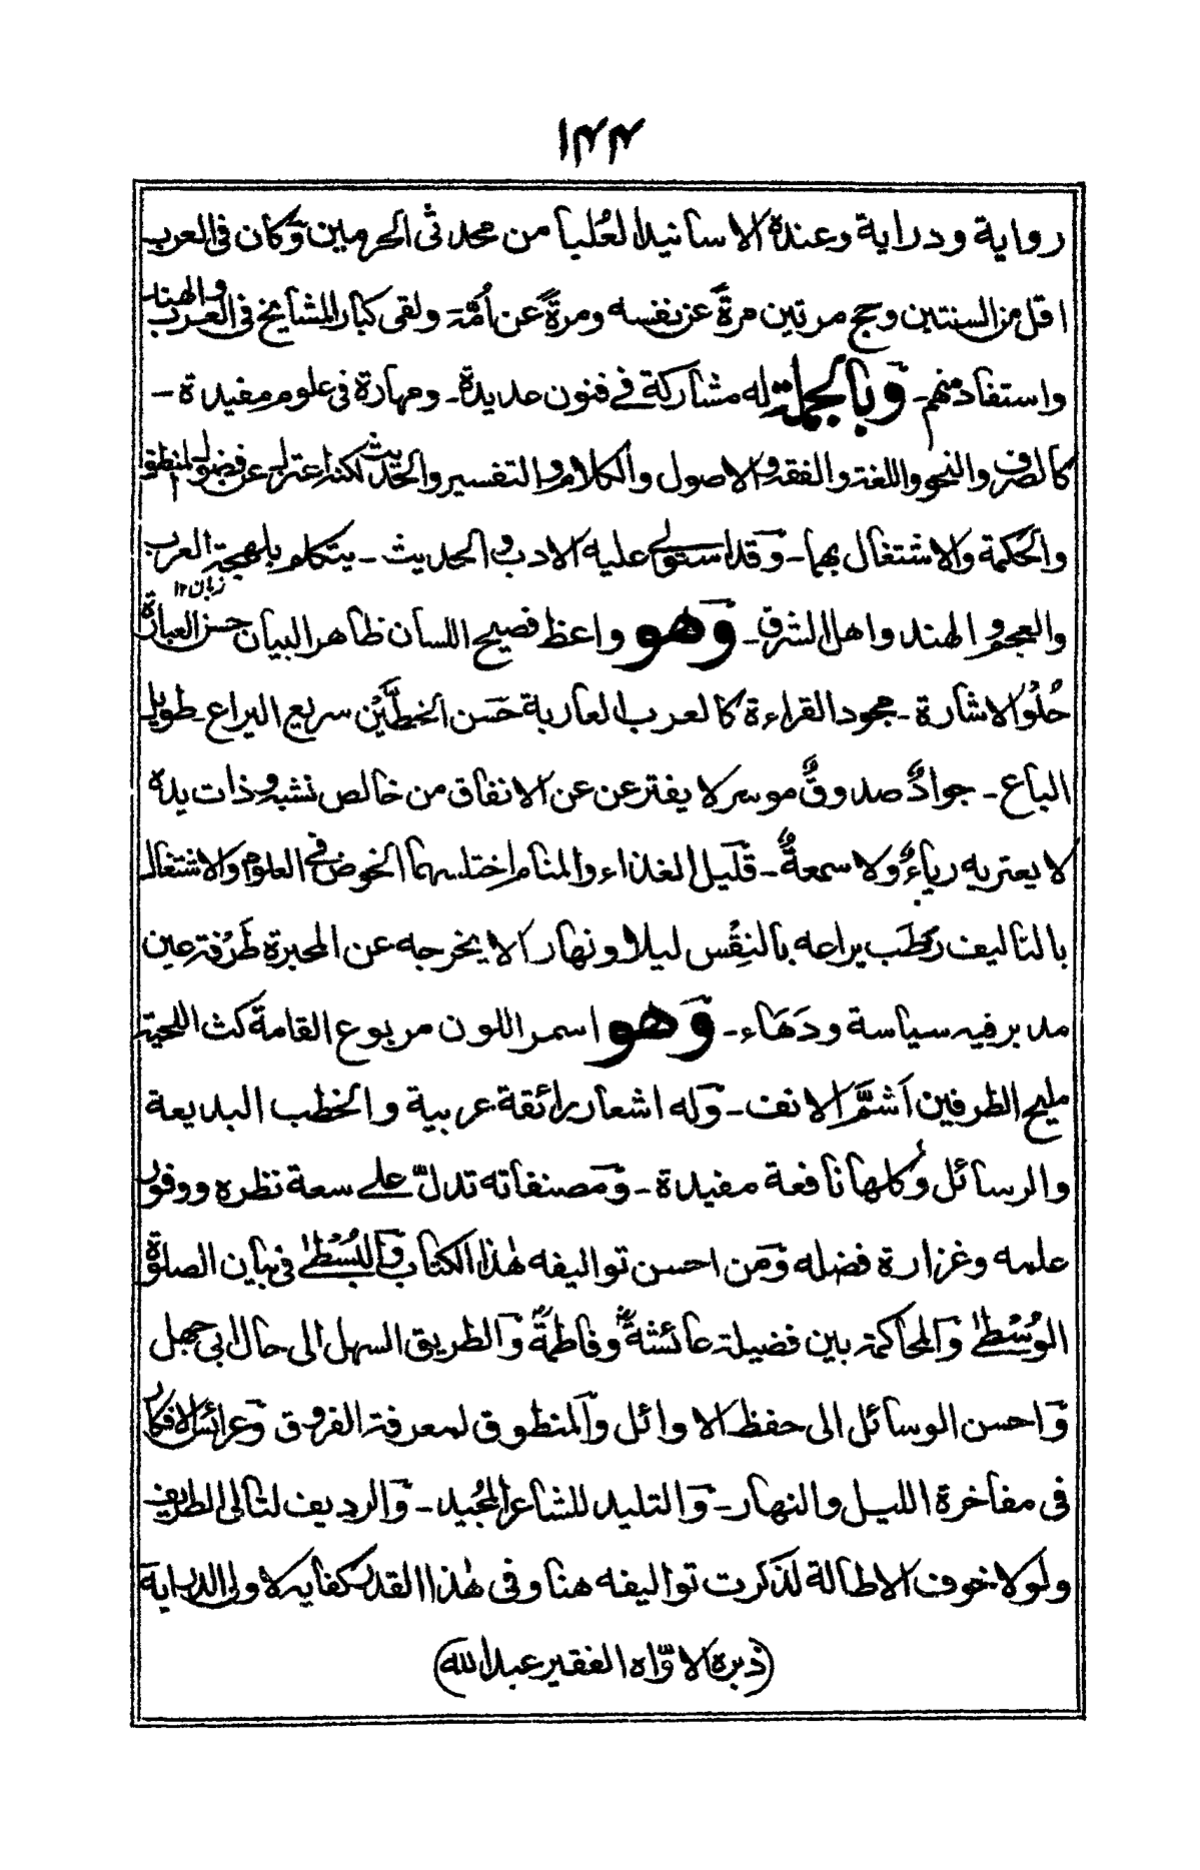 ۱۴۴
رواية ودراية وعنده الاسانيد العُليا من محدثى الحرمين وَكان فى العرب
اقل من السنتين وحج مرتين مرةً عن نفسه ومرةً عن اُمّه ولقى كبار المشايخ فى العرب والهند
واستفاد منهم۔ وَبالجملة له مشاركة فے فنون عديدة۔ ومهارة فى علوم مفيدة ۔
كالصرف والنحو واللغة والفقه والاصول والكلام والتفسير والحديث لكنه اعتزل عن فضول المنطق
والحكمة والاشتغال بهما۔ وَقد استولے عليه الادب والحديث ۔ يتكلم بلهجة العرب
زبان ۱۲
والعجم والهند واهل الشرق۔ وَهو واعظ فصيح اللسان ظاهر البيان حسن العبارة
حُلْوُ الاشارة ۔ مجود القراءة كالعرب العاربة حَسَن الخطَّيْن سريع اليراع۔ طويل
الباع ۔ جوادٌ صدوقٌ موسر لا يفتر عن عن الانفاق من خالص نشبه وذات يده
لا يعتريه رياءٌ ولا سمعةٌ ۔ قَليل الغذاء والمنام اختلسهما الخوض فے العلوم والاشتغال
بالتاليف رَطب يراعه بالنِقْس ليلا ونهارا لا يخرجه عن المحبرة طَرْفة عين
مدبر فيه سياسة ودَهَاء ۔ وَهو اسمر اللون مربوع القامة كث اللحية
مليح الطرفين اَشمَّ الانف ۔ وَله اشعار رائقة عربية والخطب البديعة
والرسائل وُكلها نافعة مفيدة ۔ وَمصنفاته تدلّ علے سعة نظره ووفور
علمه وغزارة فضله وَمن احسن تواليفه هٰذا الكتاب وَالبُسْطٰے فى بيان الصلوة
الوُسْطٰے وَالمحاكمة بين فضيلة عائشةؓ وفاطمةؓ وَالطريق السهل الى حال ابى جهل
وَاحسن الوسائل الى حفظ الاوائل وَالمنطوق لمعرفة الفروق وَعرائس الافكار
فى مفاخرة الليل والنهار۔ وَالتليد للشاعر المُجيد ۔ وَالرديف لتالى الطريف
ولولا خوف الاطالة لذكرت تواليفه هنا وفى هٰذا القدر كفاية لاولى الدراية
(ذبره الاوّاه الفقير عبد الله)